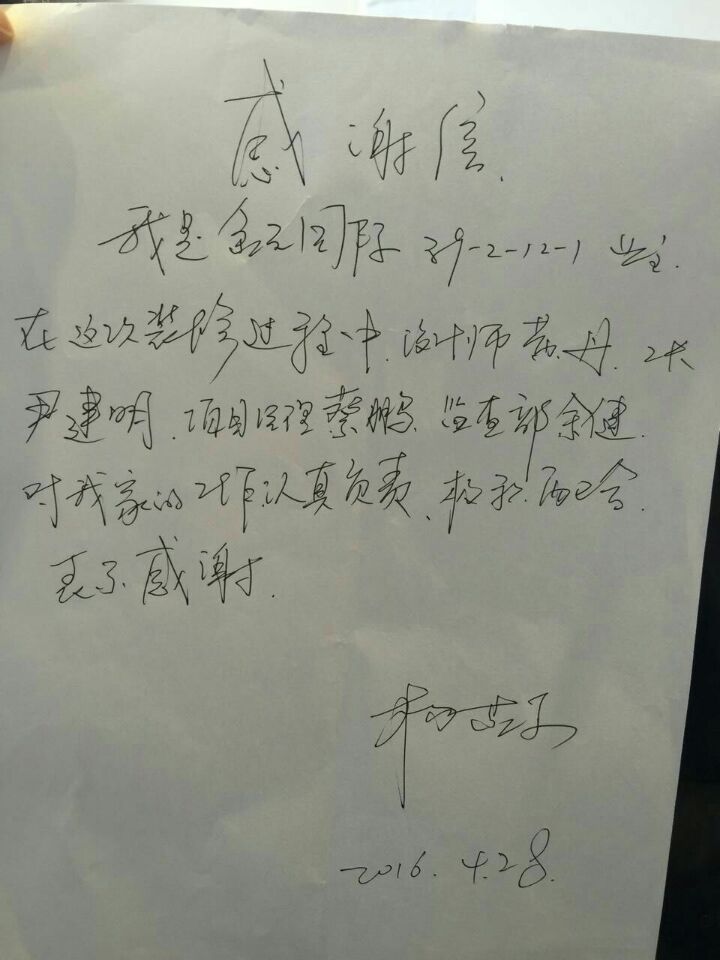 感谢信.
我是 39-2-12-1 业主.
在这次装修过程中.设计师 丹. 工长
尹建明.项目经理蔡鹏.监查部余健.
对我家的工作认真负责、积极配合.
表示感谢.
2016.4.28.